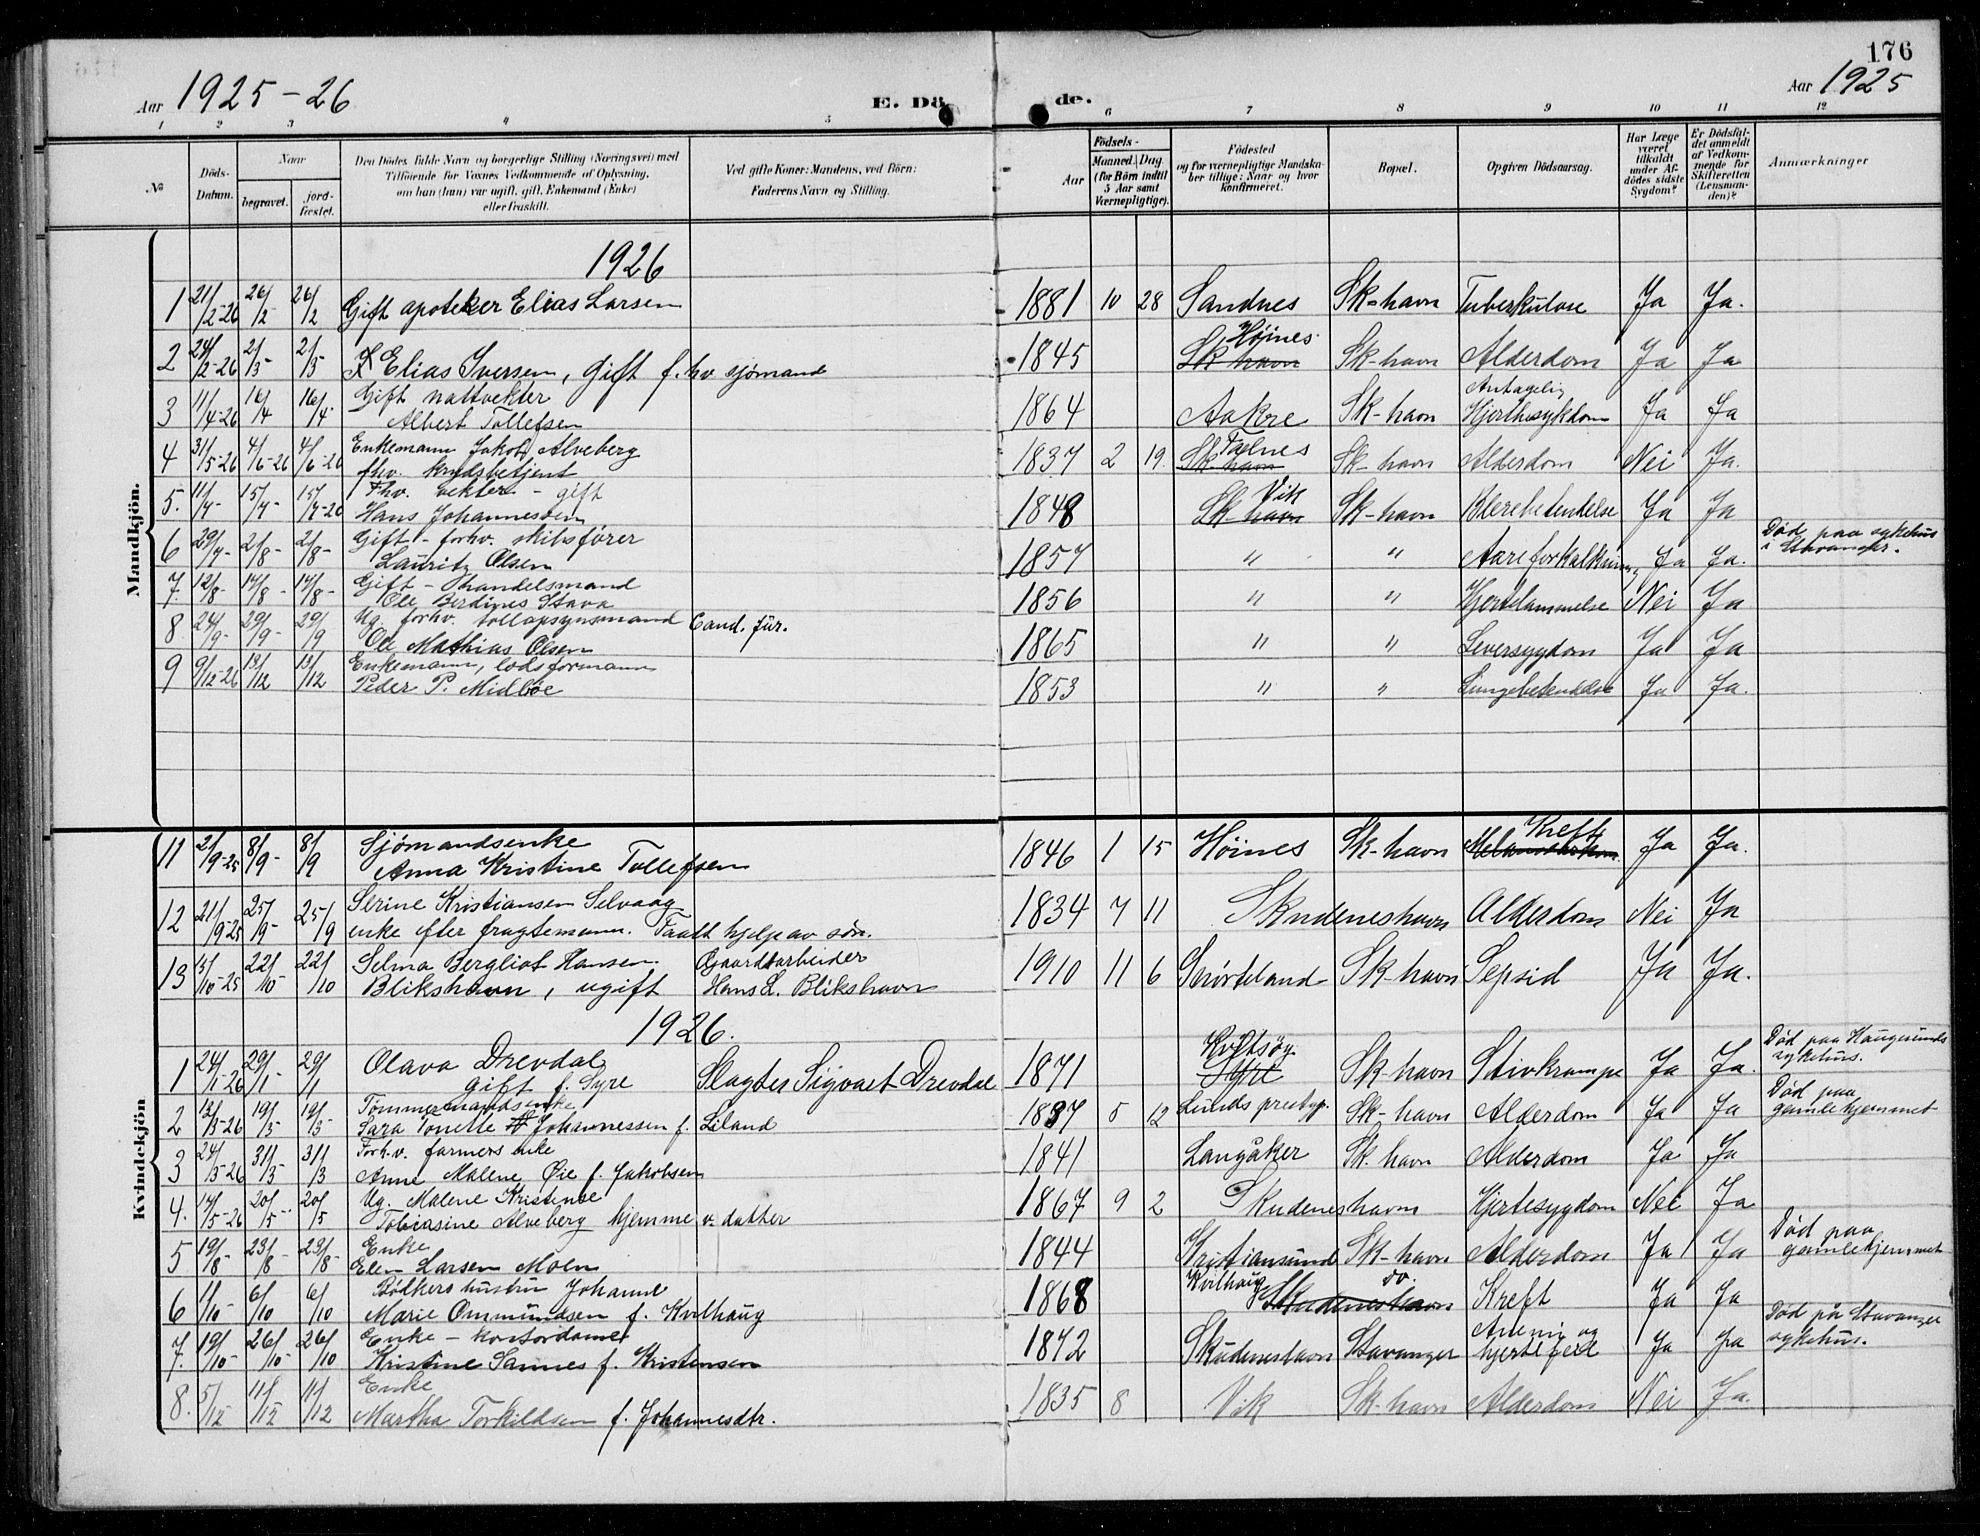 176
Aar 1925-26
E. Dö
de.
Aar 1925
1 2 3 4 5 6 7 8 9 10 11 12
No
Döds-Datum.
Naar
begravet.
jord-fæstet.
Den Dödes fulde Navn og borgerlige Stilling (Næringsvei) med
Tilföiende for Voxnes Vedkommende af Oplysning,
om han (hun) var ugift, gift, Enkemand (Enke)
eller fraskilt.
Ved gifte Koner: Mandens, ved Börn:
Faderens Navn og Stilling.
Födsels-
Aar
Maaned. Dag.
(for Börn indtil 5 Aar samt Værnepligtige).
Födested
og for værnepligtige Mandska-
ber tillige: Naar og hvor
konfirmeret.
Bopæl.
Opgiven Dödsaarsag.
Har Læge været tilkaldt under Af-dödes sidste Sygdom?
Er Dödsfal-det anmeldt af Vedkom-mende for Skifteretten (Lensman-den)?
Anmærkninger
Mandkjön.
1926
1 21/2-26 26/2 26/2 Gift apoteker Elias Larsen 1881 10 28 Sandnes Sk-havn Tuberkulose Ja Ja.
2 24/2-26 2/3 2/3 Elias Iversen, Gift f. hv sjömand 1845 Sk-havn Höines Sk-havn Alderdom Ja Ja
3 11/4-26 16/4 16/4 Gift nattvekter
Albert Tollefsen 1864 Aakre Sk-havn Antagelig Hjerthesykdom Ja Ja
4 31/5-26 4/6-26 4/6-26 Enkemann Jakob Alveberg
fhv. krydsbetjent 1837 2 19 Sk-havn Falnes Sk-havn Alderdom Nei Ja.
5. 11/7- 15/7- 15/7-26 Fhv. vekter - gift
Hans Johannesen 1848 Sk-havn Vik Sk-havn Blærebetendelse Ja Ja
6 29/7- 2/8- 2/8- Gift - forhv. skibsförer
Lauritz Olsen 1857 " " Aareforkalkning Ja Ja. Död paa sykehus i Stavanger.
7. 12/8- 17/8- 17/8- Gift - handelsmand
Ole Berdines Stava 1856 " " Hjertelammelse Nei Ja
8. 24/9- 29/9- 29/9 Ug. forhv. tollopsynsmand Cand. jur.
Ole Mathias Olsen 1865 " " Leversygdom Ja Ja
9 9/12-26 13/12 13/12 Enkemann, lodsformann
Peder P. Midböe 1853 " " Lungebetendelse Ja Ja.
Kvindekjön
11 2/9-25 8/9- 8/9 Sjömandsenke
Anna Kristine Tollefsen 1846 1 15 Höines Sk-havn Kreft Ja Ja.
12 21/9-25 25/9- 25/9 Serine Kristiansen Selvaag
enke efter fragtemann. Faatt hjelp av sön. 1834 7 11 Skudeneshavn Alderdom Nei Ja
13 /10-25 22/10- 22/10 Selma Bergliot Hansen Gaardarbeider
Blikshavn, ugift Hans L. Blikshavn 1910 11 6 Sk-havn Sepsid Ja Ja.
1926.
1 24/1-26 29/1- 29/1 Olava Drevdal
gift f. Syre Slagter Sigvart Drevdal 1871 Syre Kvitsöy Sk-havn Stivkrampe Ja Ja. Död paa Haugesunds sykehus.
2 13/3-26 19/3- 19/3- Tömmermandsenke
Sara Tonette Johannessen f. Liland 1837 5 12 Lunds prestgj. Sk-havn Alderdom Ja Ja Död paa gamlehjemmet
3 24/3-26 31/3- 31/3 Forh.v. farmers enke
Anne Malene Öie f. Jakobsen 1841 Langåker Sk. havn Alderdom Ja Ja
4. 14/5-26 20/5- 20/5 Ug. Malene Kristense
Tobiasine Alveberg hjemme v. datter 1867 9 2 Skudeneshavn Hjertesygdom Nei Ja
5 19/8- 23/8- 23/8- Enke
Elen Larsen Moln 1844 Kristiansund Sk-havn Alderdom Ja Ja Död paa gamlehjemmet
6 1/10- 6/10 6/10 Bödkers hustru Johanne
Marie Ommundsen f. Kvilhaug 1868 Kvilhaug Skudeneshavn do. Kreft Ja Ja
7. 19/10- 26/10- 26/10 Enke - kontordame
Kristine Sannes f. Kristensen 1872 Skudeneshavn Stavanger og hjertefeil Ja Ja Död på Stavanger sykehus.
8. 5/12 11/12 11/12 Enke
Martha Torkildsen f. Johannesdtr. 1835 8 Vik Sk-havn Alderdom Nei Ja.